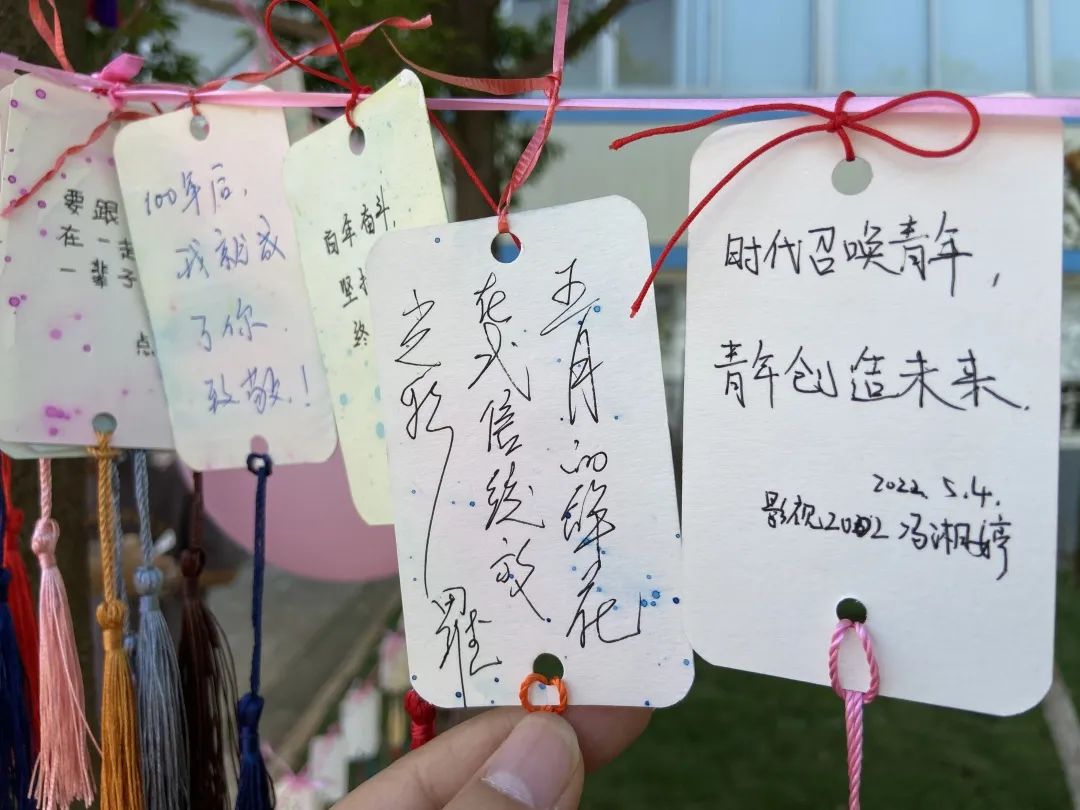 要跟
在一起
一辈子
点
100年后,
我就成
了你.
致敬!
百年奋斗,
坚
终
五月的鲜花
在我信绽放
光彩
时代召唤青年,
青年创造未来.
2022.5.4.
影视2002 冯湘婷